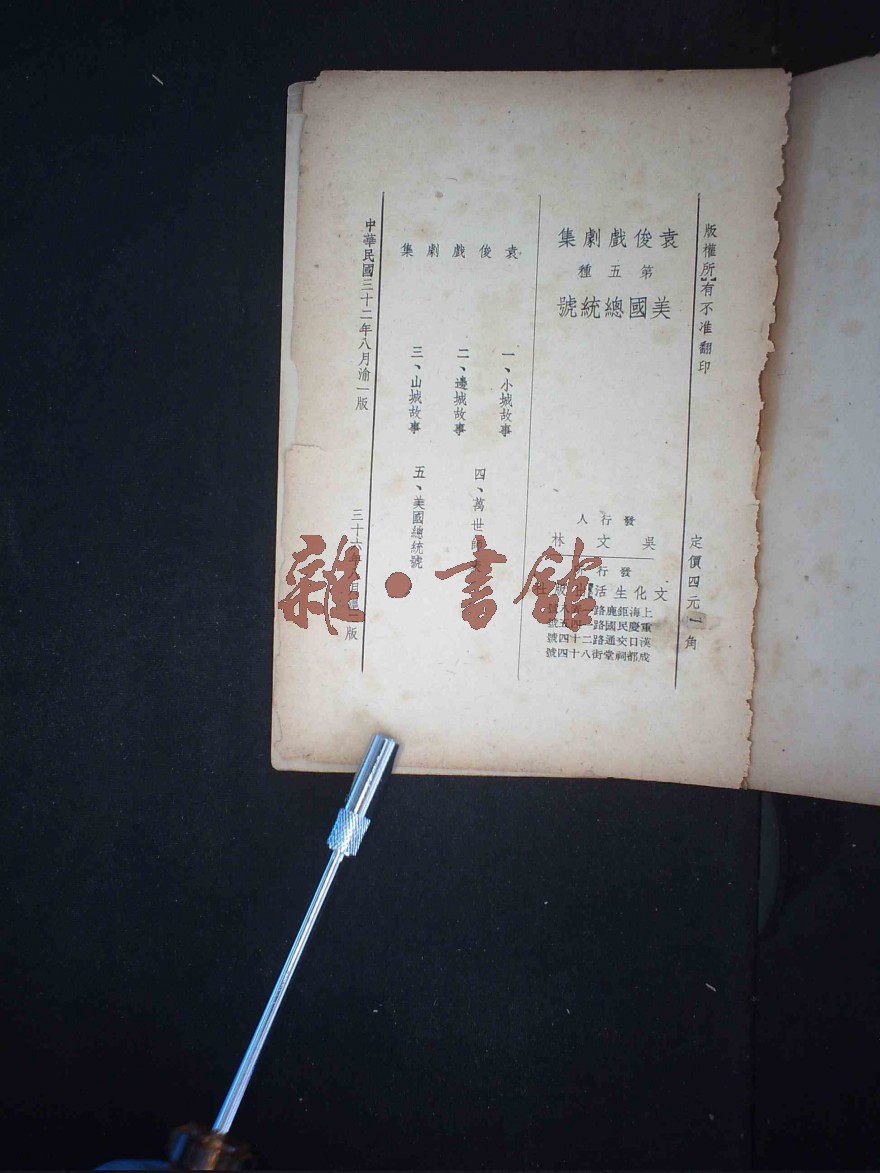 版權所有不准翻印
定價四元一角
袁俊戲劇集
第五種
美國總統號
發行人
吳文林
發行
文化生活出版社
上海鉅鹿路一
重慶民國路一四五號
漢口交通路二十四號
成都祠堂街八十四號
袁俊戲劇集
一、小城故事
二、邊城故事
三、山城故事
四、萬世師表
五、美國總統號
中華民國三十二年八月渝一版
三十六年 月 版
雜·書館